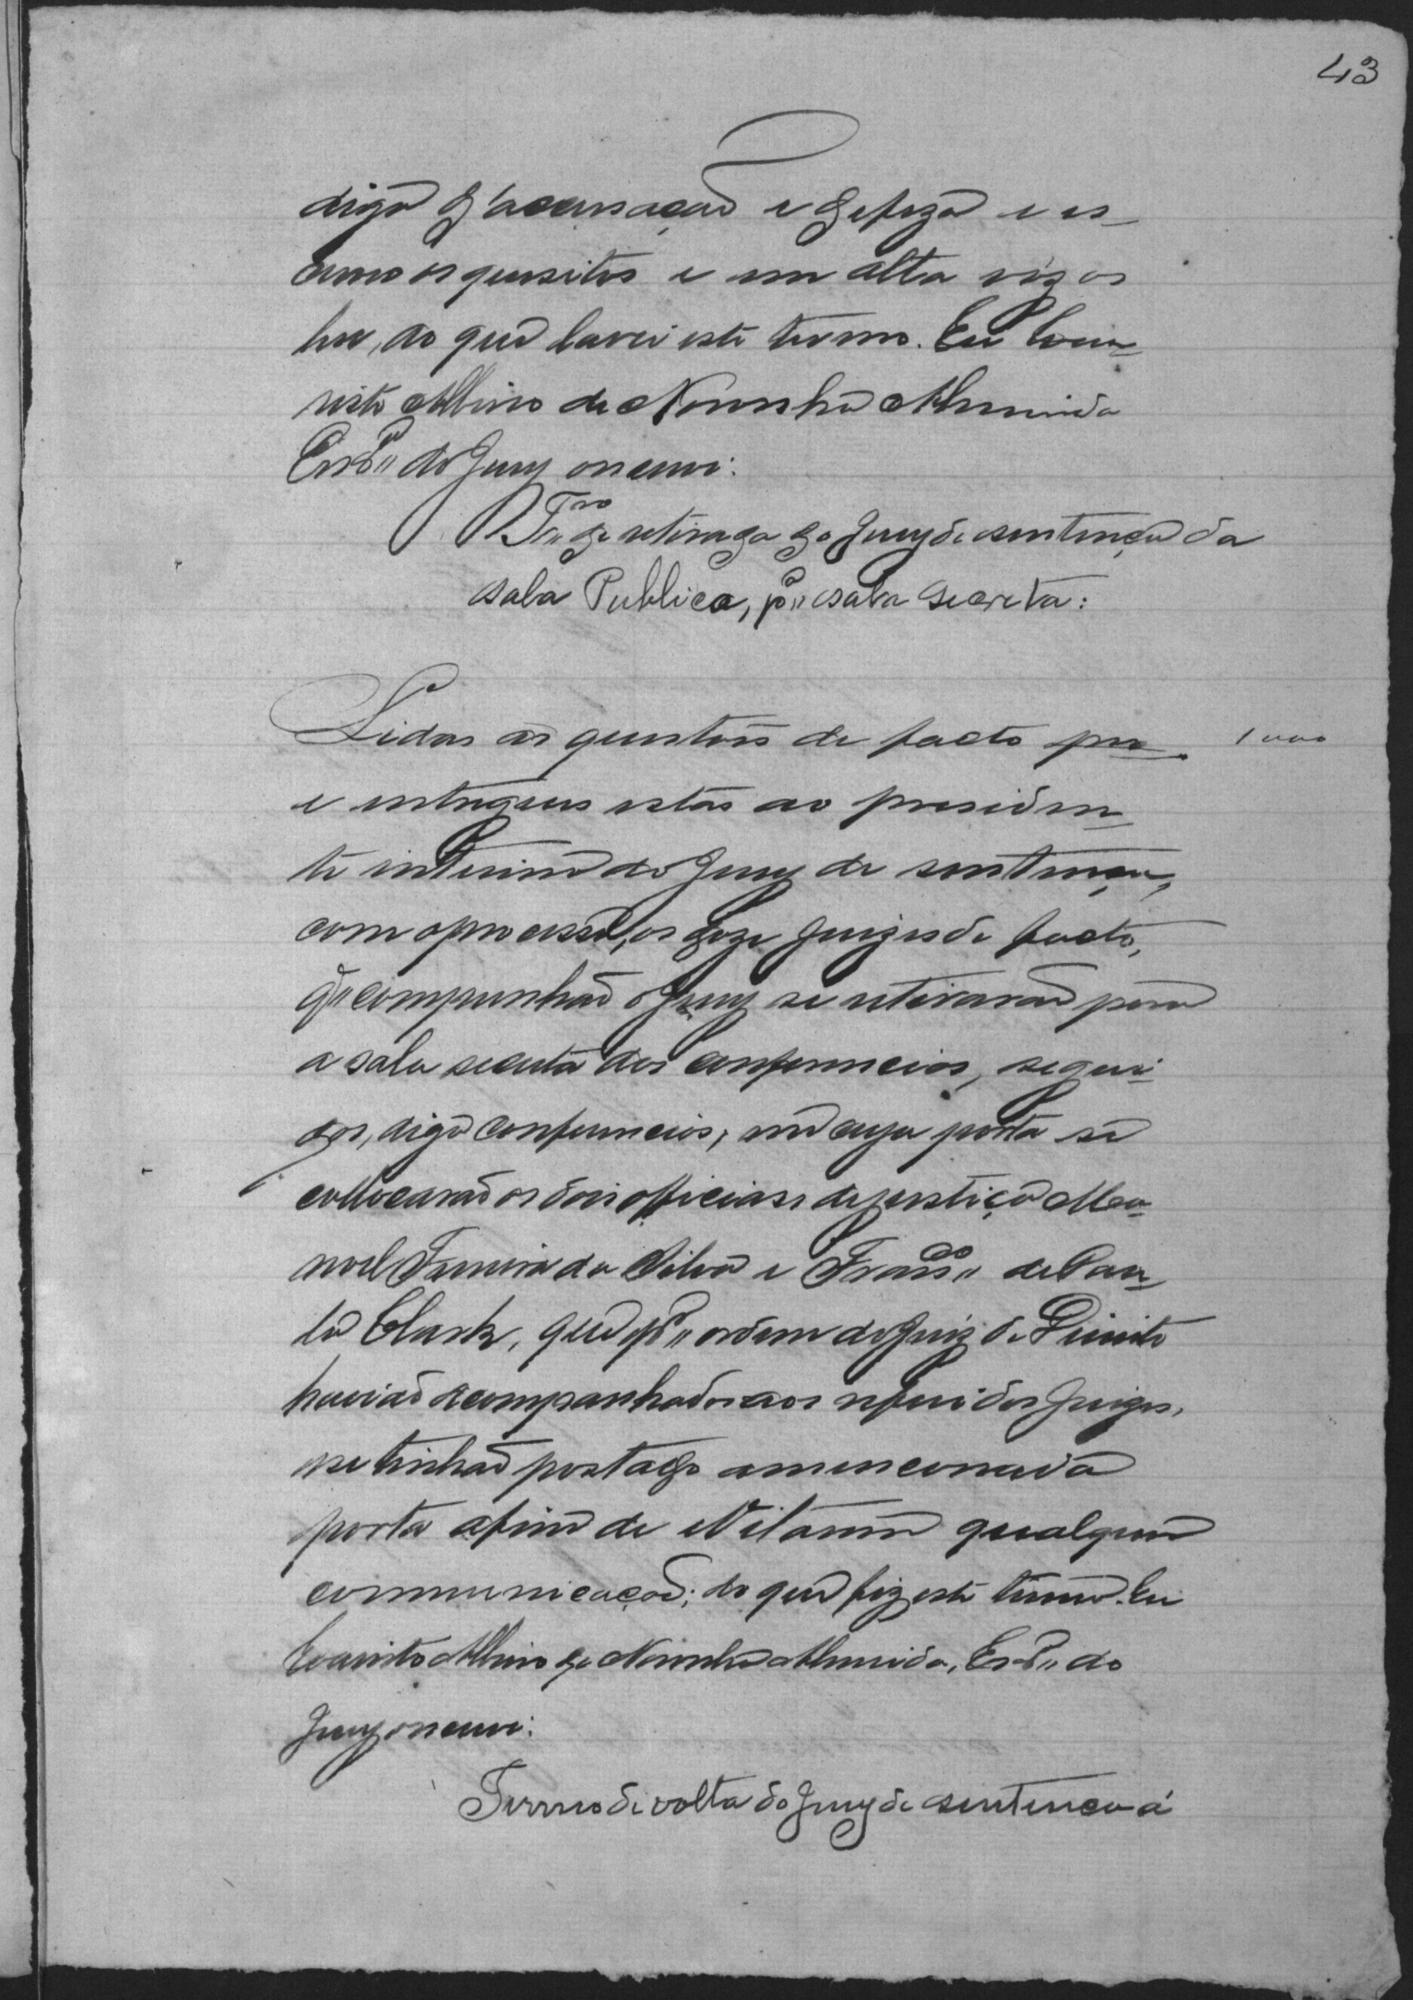 43
digo d'accusação e defeza e es-
creveo os quesitos e em alta vóz os
leu, do que lavrei este termo. Eu Eva-
risto Albino de Noronha Almeida
Escr.am do Jury o escrevi:
T.mo de retirada do Jury de sentença da
sala Publica, p.a a sala secreta:
Lidas as questões de facto pro-
1000
e entregues estas ao presiden-
te interino do Jury de sentença,
com o processo, os doze Juizes de facto,
q.e compunhão o Jury se retirarão para
a sala secreta das conferencias, segui-
dos, digo conferencias, em cuja porta se
collocarão os dois officiaes de justiça Ma-
noel Ferreira da Silva e Franc.co de Pau-
la Clark, que p.r ordem do Juiz de Direito
havião acompanhado aos referidos Juizes,
se tinhão postado a mencionada
porta afim de evitarem qualquer
communicação; do que fiz este termo. Eu
Evaristo Albino de Noronha Almeida, Escr.am do
Jury o escrevi:
Termo de volta do Jury de sentença á